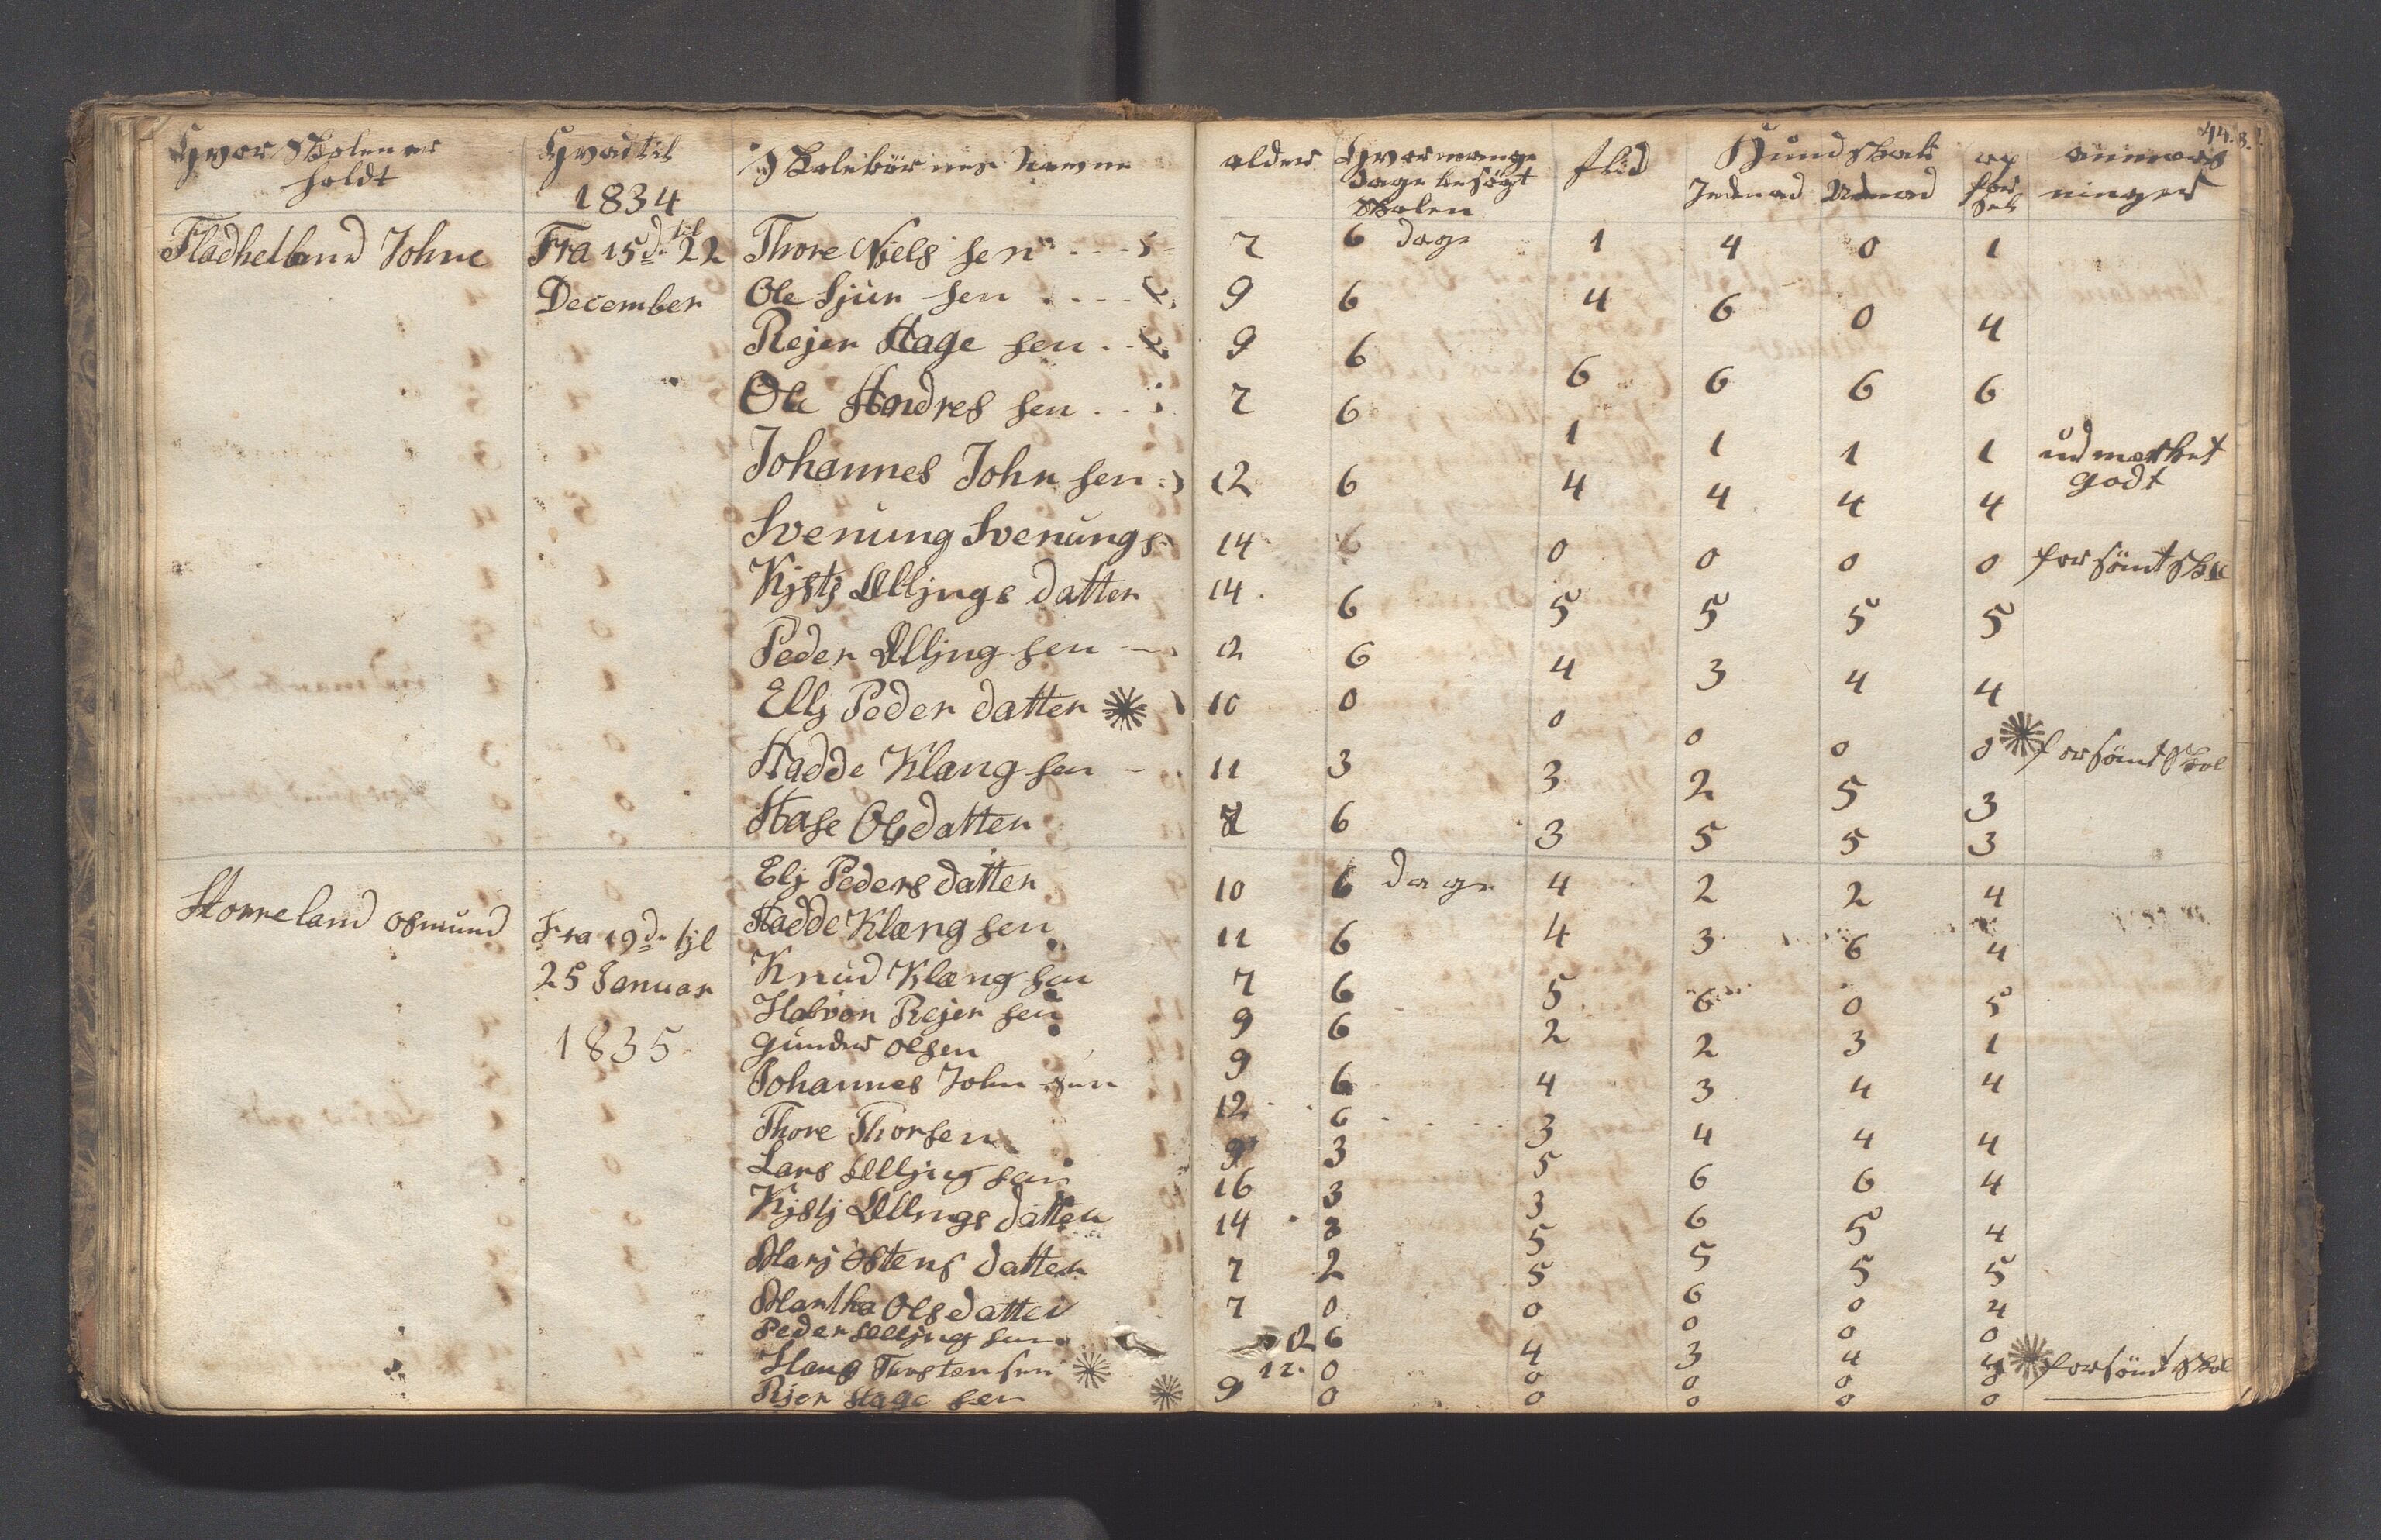 Hvor Skolen er holdt | Hvad tid 1834 | Skolebörnes Navne | alder | Hvor mange dage besögt Skolen | flid | Kundskab Indenad Udenad | opför sel | anmærk ninger
44. 8.
Fladhelland Johne | Fra 15d. til 22 | Thore Niels sen | 7 | 6 dage | 1 | 4 | 0 | 1
December | Ole Sjur sen | 9 | 6 | 4 | 6 | 0 | 4
Rejer Aage sen | 9 | 6 | 6 | 6 | 6 | 6
Ole Andres sen | 7 | 6 | 1 | 1 | 1 | 1 | udmærket godt
Johannes John sen | 12 | 6 | 4 | 4 | 4 | 4
Svenung Svenungs | 14 | 6 | 0 | 0 | 0 | 0 | forsömt Skol
Kjstj Ølljngs datter | 14 | 6 | 5 | 5 | 5 | 5
Peder Ølljng sen | 12 | 6 | 4 | 3 | 4 | 4
Ellj Peder datter | 10 | 0 | 0 | 0 | 0 | 0 | forsömt Skol
Aadde Klang sen | 11 | 3 | 3 | 2 | 5 | 3
Aase Olsdatter | 6 | 3 | 5 | 5 | 3
Elj Peders datter | 10 | 6 dage | 4 | 2 | 2 | 4
Storreland Osmund | Fra 19d. tjl | Aadde Klang sen | 11 | 6 | 4 | 3 | 6 | 4
25 Januar | Knud Klang sen | 7 | 6 | 5 | 6 | 0 | 5
Halvor Rejer sen | 9 | 6 | 2 | 2 | 3 | 1
1835 | Gunder Olsen | 9 | 6 | 4 | 3 | 4 | 4
Johannes John sen | 12 | 6 | 3 | 4 | 4 | 4
Thore Thorsen | 9 | 3 | 5 | 6 | 6 | 4
Lars Ølljng sen | 16 | 3 | 3 | 6 | 5 | 4
Kjstj Øllngs datter | 14 | 3 | 5 | 5 | 5 | 5
Marj Østens datter | 7 | 2 | 5 | 6 | 0 | 4
Martha Olsdatter | 7 | 0 | 0 | 0 | 0 | 0
Peder Ølljng sen | 12 | 6 | 4 | 3 | 4 | 4 | forsömt Skol
Hans Torsten sen | 12 | 0 | 0 | 0 | 0 | 0
Rjer Aage sen | 9 | 0 | 0 | 0 | 0 | 0